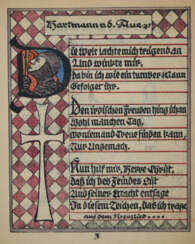 Hartmann v. d. Aue
Die Welt lachte mich trügend an
Und winkte mir,
da bin ich wie ein tumber Mann
Gefolget ihr.
Den irdischen Freuden hing ich an
Wohl manchen Tag,
wo niemand Treue finden kann,
Nur Ungemach.
Nun hilf mir, Herre Christ,
Daß ich des Feindes List
Und seiner Macht entsage
In diesem Zeichen, das ich trage
aus dem Kreuzlied....